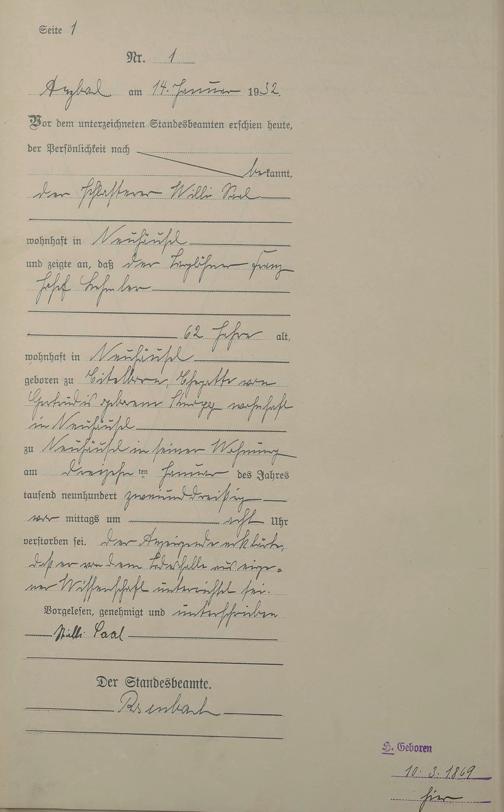 Seite 1
Nr. 1
Arzbach am 14. Januar 1932.
Vor dem unterzeichneten Standesbeamten erschien heute,
der Persönlichkeit nach
bekannt,
der Willi Saal
wohnhaft in Neuhäusel
und zeigte an, daß der Taglöhner Franz
Josef
62 Jahre alt,
wohnhaft in Neuhäusel
geboren zu Eitelborn, Ehegatte von
Gertrudis geborene wohnhaft
in Neuhäusel
zu Neuhäusel in seiner Wohnung
am dreizehnten Januar des Jahres
tausend neunhundert zweiunddreißig
vor mittags um acht Uhr
verstorben sei. Der Anzeigende erklärte,
daß er von dem Todesfalle aus eige-
ner Wissenschaft unterrichtet sei.
Vorgelesen, genehmigt und unterschrieben
Willi Saal
Der Standesbeamte.
G. Geboren
10. 3. 1869
hier